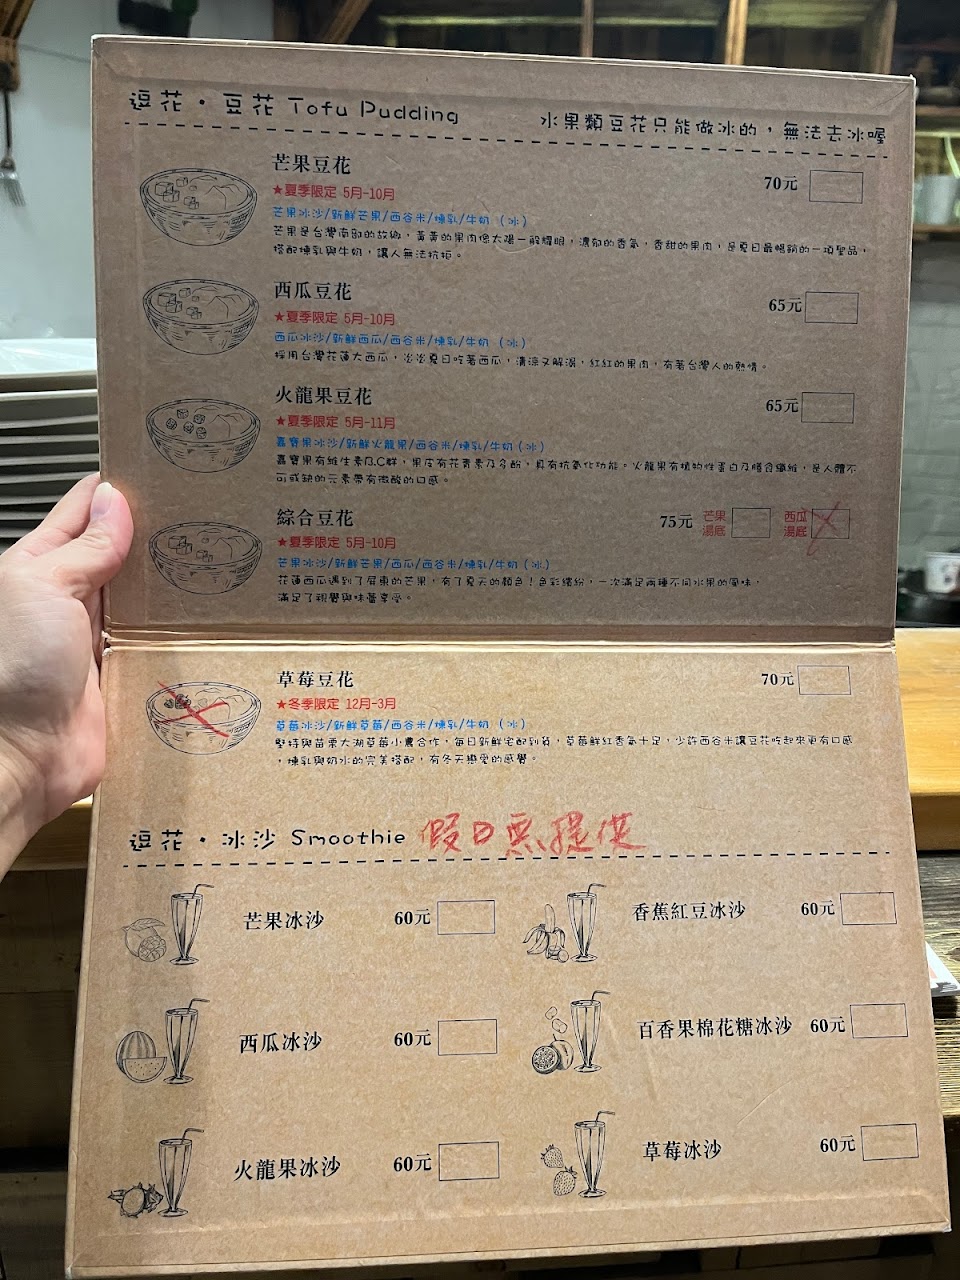 逗花・豆花 Tofu Pudding 水果類豆花只能做冰的，無法去冰喔
芒果豆花 70元
★夏季限定 5月-10月
芒果冰沙/新鮮芒果/西谷米/煉乳/牛奶（冰）
芒果是台灣南部的故鄉，黃黃的果肉像太陽一般耀眼，濃郁的香氣，香甜的果肉，是夏日最暢銷的一項聖品，
搭配煉乳與牛奶，讓人無法抗拒。
西瓜豆花 65元
★夏季限定 5月-10月
西瓜冰沙/新鮮西瓜/西谷米/煉乳/牛奶（冰）
採用台灣花蓮大西瓜，澎澎夏日吃著西瓜，清涼又解渴，紅紅的果肉，有著台灣人的熱情。
火龍果豆花 65元
★夏季限定 5月-11月
嘉寶果冰沙/新鮮火龍果/西谷米/煉乳/牛奶（冰）
嘉寶果有維生素B.C群，果皮有花青素及多酚，具有抗氧化功能。火龍果有植物性蛋白及膳食纖維，是人體不
可或缺的元素帶有微酸的口感。
綜合豆花 75元 芒果湯底 西瓜湯底
★夏季限定 5月-10月
芒果冰沙/新鮮芒果/西瓜/西谷米/煉乳/牛奶（冰）
花蓮西瓜遇到了屏東的芒果，有了夏天的顏色！色彩繽紛，一次滿足兩種不同水果的風味，
滿足了視覺與味蕾享受。
草莓豆花 70元
★冬季限定 12月-3月
草莓冰沙/新鮮草莓/西谷米/煉乳/牛奶（冰）
堅持與苗栗大湖草莓小農合作，每日新鮮宅配到貨，草莓鮮紅香氣十足，少許西谷米讓豆花吃起來更有口感
，煉乳與奶水的完美搭配，有冬天戀愛的感覺。
逗花・冰沙 Smoothie 假日無提供
芒果冰沙 60元 香蕉紅豆冰沙 60元
西瓜冰沙 60元 百香果棉花糖冰沙 60元
火龍果冰沙 60元 草莓冰沙 60元